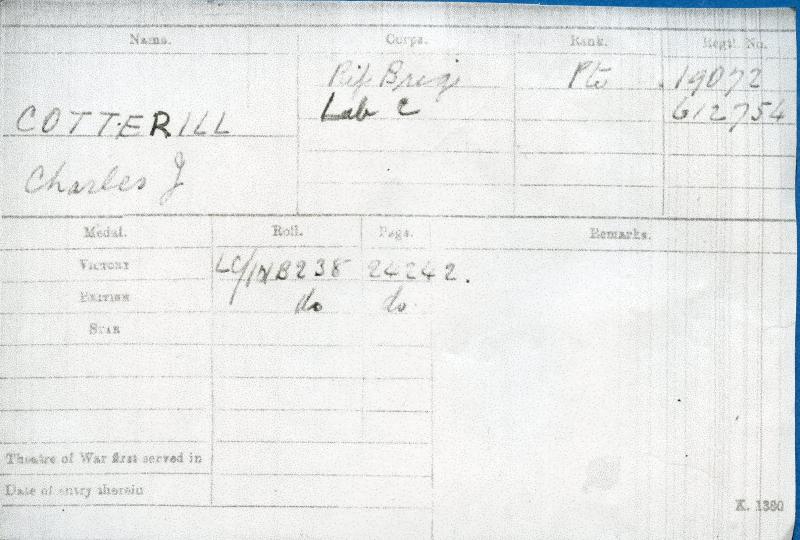 Name. Corps. Rank. Regtl. No.
Rif Brig Pte 19072
COTTERILL Lab C 612754
Charles J
Medal. Roll. Page. Remarks.
VICTORY LC/ 238 24242.
BRITISH do do
STAR
Theatre of War first served in
Date of entry therein
K. 1380